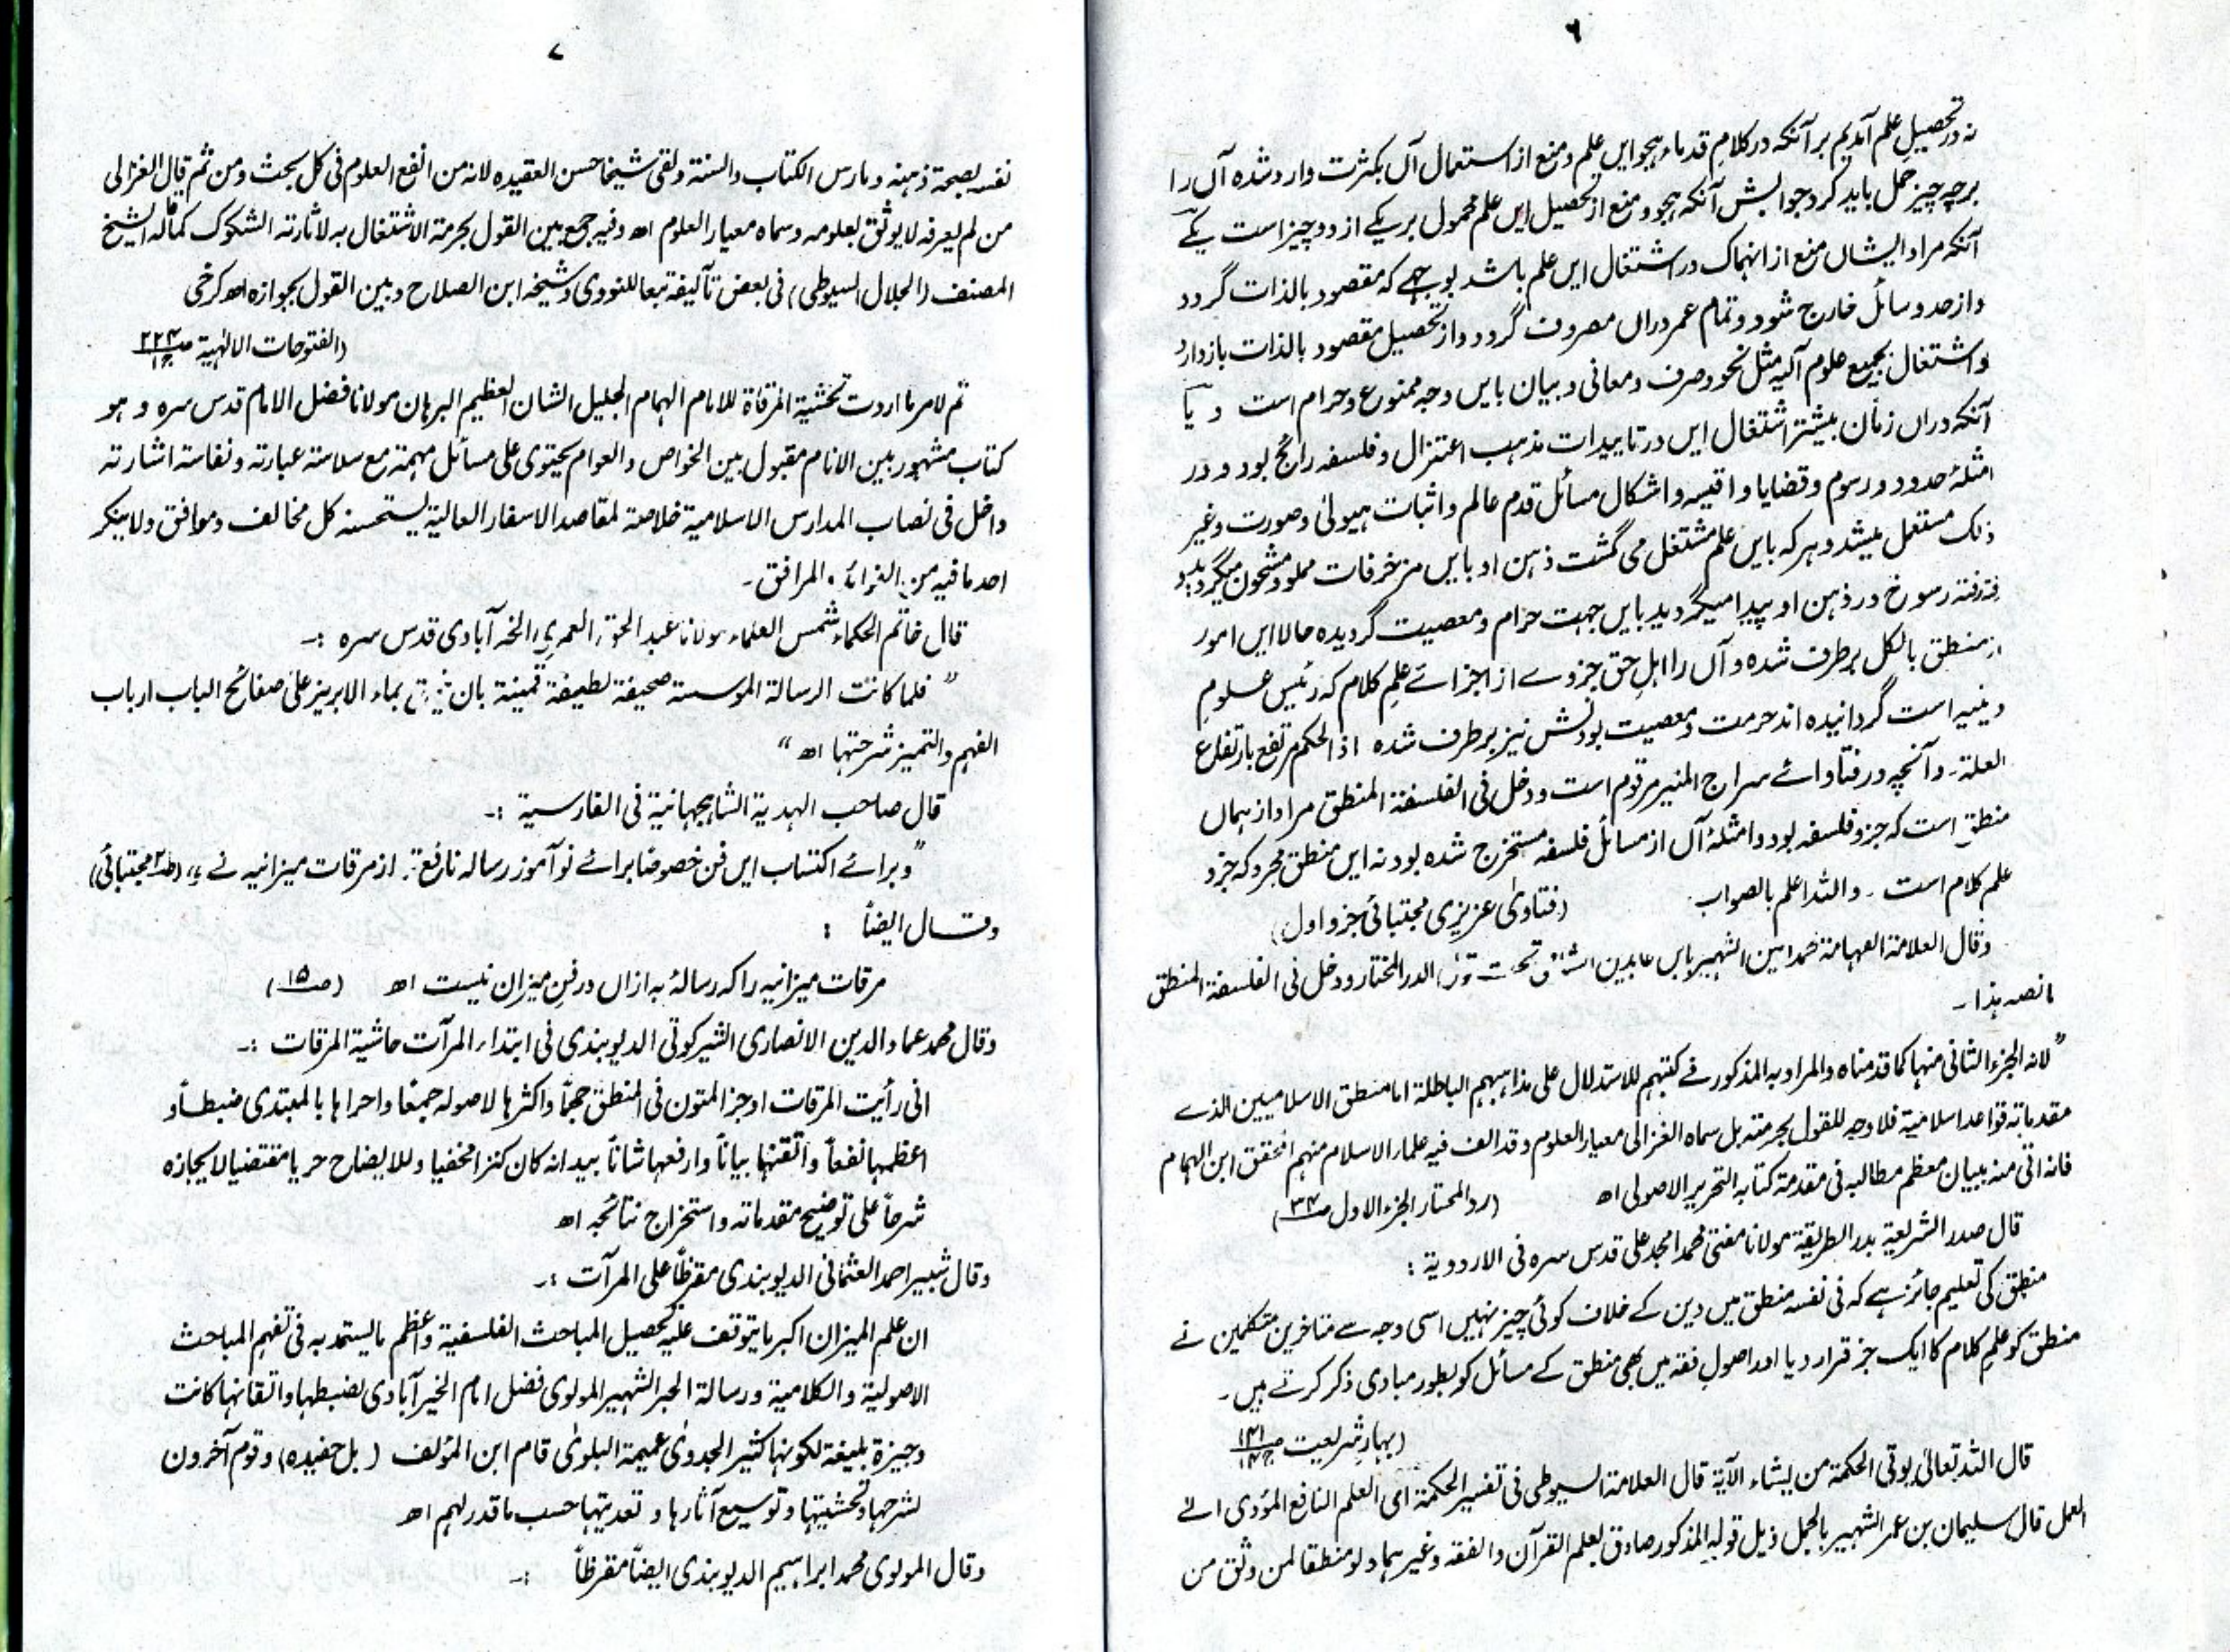 ۶
نہ در تحصیلِ علم آمدیم بر آنکہ در کلامِ قدماء ہجو ایں علم و منع از استعمال آں بکثرت وارد شدہ آں را
بر چہ چیز حمل باید کرد جوابش آنکہ ہجو و منع از تحصیل ایں علم محمول بر یکے از دو چیز است یکے
آنکہ مراد ایشاں منع از انہماک در اشتغال ایں علم باشد بوجہے کہ مقصود بالذات گردد
و از حد وسائل خارج شود و تمام عمر دراں مصروف گردد و از تحصیل مقصود بالذات باز دارد
و اشتغال بجمیع علوم آلیہ مثل نحو و صرف و معانی و بیان بایں وجہ ممنوع و حرام است و یا
آنکہ دراں زمان بیشتر اشتغال ایں در تاییدات مذہب اعتزال و فلسفہ رائج بود و در
امثلۂ حدود و رسوم و قضایا و اقیسہ و اشکال مسائل قدم عالم و اثبات ہیولیٰ و صورت و غیر
ذلک مستعمل میشد و ہر کہ بایں علم مشتغل می گشت ذہن او بایں مزخرفات مملو و مشحون میگردید و
رفتہ رسوخ در ذہن او پیدا میگردید بایں جہت حرام و معصیت گردیدہ حالا ایں امور
از منطق بالکل برطرف شدہ و آں را اہلِ حق جزوے از اجزائے علمِ کلام کہ رئیس علومِ
دینیہ است گردانیدہ اند حرمت و معصیت بودنش نیز برطرف شدہ اذ الحکم مرتفع بارتفاع
العلۃ۔ و آنچہ در فتاوائے سراج المنیر مرقوم است و دخل فی الفلسفۃ المنطق مراد از ہماں
منطق است کہ جزو فلسفہ بود و امثلۂ آں از مسائل فلسفہ مستخرج شدہ بود نہ ایں منطق مجرد کہ جزو
علم کلام است ۔ واللہ اعلم بالصواب۔ (فتاویٰ عزیزی مجتبائی جزو اول)
وقال العلامۃ الفہامۃ محمد امین الشہیر بابن عابدین الشامی تحت قول الدر المختار ودخل فی الفلسفۃ المنطق
ما نصہ ہذا۔
”لانہ الجزء الثانی منہا کما قدمناہ والمراد بہ المذکور فے کتبہم للاستدلال علی مذاہبہم الباطلۃ اما منطق الاسلامیین الذے
مقدماتہ قواعد اسلامیۃ فلا وجہ للقول بحرمتہ بل سماہ الغزالی معیار العلوم وقد الف فیہ علماء الاسلام منہم المحقق ابن الہمام
فانہ اتی منہ ببیان معظم مطالبہ فی مقدمۃ کتابہ التحریر الاصولی اھ (رد المحتار الجزء الاول ص۳۴)
قال صدر الشریعۃ بدر الطریقۃ مولانا مفتی محمد امجد علی قدس سرہ فی الاردویۃ :
منطق کی تعلیم جائز ہے کہ فی نفسہ منطق میں دین کے خلاف کوئی چیز نہیں اسی وجہ سے متاخرین متکلمین نے
منطق کو علمِ کلام کا ایک جز قرار دیا اور اصولِ فقہ میں بھی منطق کے مسائل کو بطور مبادی ذکر کرتے ہیں۔
(بہارِ شریعت ص۱۴۱ ج۱۶)
قال اللہ تعالیٰ یوتی الحکمۃ من یشاء الآیۃ قال العلامۃ السیوطی فی تفسیر الحکمۃ ای العلم النافع المؤدی الے
العمل قال سلیمان بن عمر الشہیر بالجمل ذیل قولہ المذکور صادق بعلم القرآن والفقہ وغیرہما ولو منطقا لمن وثق من
۷
نفسہ بصحۃ ذہنہ ومارس الکتاب والسنۃ ولقی شیخا حسن العقیدہ لانہ من انفع العلوم فی کل بحث ومن ثم قال الغزالی
من لم یعرفہ لا یوثق بعلومہ وسماہ معیار العلوم اھ وفیہ جمع بین القول بحرمۃ الاشتغال بہ لاثارتہ الشکوک کما قالہ الشیخ
المصنف (الجلال السیوطی) فی بعض تآلیفہ تبعا للنووی وشیخہ ابن الصلاح وبین القول بجوازہ اھ کرخی
(الفتوحات الالٰہیۃ ص۲۲۴ ج۱)
ثم لامر ما اردت تحشیۃ المرقاۃ للامام الہمام الجلیل الشان العظیم البرہان مولانا فضل الامام قدس سرہ وہو
کتاب مشہور بین الانام مقبول بین الخواص والعوام یحتوی علی مسائل مہمۃ مع سلاسۃ عبارتہ ونفاستہ اشارتہ
داخل فی نصاب المدارس الاسلامیۃ خلاصۃ لمقاصد الاسفار العالیۃ یستحسنہ کل مخالف وموافق ولا ینکر
احد ما فیہ من الفوائد والمرافق۔
قال خاتم الحکماء شمس العلماء مولانا عبد الحق العمری الخیرآبادی قدس سرہ :۔
”فلما کانت الرسالۃ الموسستہ صحیفۃ لطیفۃ قمینۃ بان بماء الابریز علیٰ صفائح الباب ارباب
الفہم والتمیز شرحتہا اھ“
قال صاحب الہدیۃ الشاہجہانیۃ فی الفارسیۃ :۔
”وبرائے اکتساب ایں فن خصوصًا برائے نو آموز رسالہ نافع تر از مرقات میزانیہ نے (ص۳ مجتبائی)
وقال ایضاً :
مرقات میزانیہ را کہ رسالۂ بہ ازاں در فن میزان نیست اھ (ص۱۵)
وقال محمد عماد الدین الانصاری الشیرکوٹی الدیوبندی فی ابتداء المرآت حاشیۃ المرقات :۔
انی رأیت المرقات اوجز المتون فی المنطق حجمًا واکثرہا لاصولہ جمعًا واحراہا بالمبتدی ضبطاً و
اعظمہا نفعاً واتقنہا بیاناً وارفعہا شاناً بید انہ کان کنزا مخفیا وللایضاح حریا مقتضیا لایجازہ
شرحاً علی توضیح مقدماتہ واستخراج نتائجہ اھ
وقال شبیر احمد العثمانی الدیوبندی مقرظاً علی المرآت :۔
ان علم المیزان اکبر ما یتوقف علیہ تحصیل المباحث الفلسفیۃ واعظم ما یستمد بہ فی تفہم المباحث
الاصولیۃ والکلامیۃ ورسالۃ الحبر الشہیر المولوی فضل امام الخیرآبادی لضبطہا واتقانہا کانت
وجیزۃ بلیغۃ لکونہا کثیر الجدویٰ عمیمۃ البلویٰ قام ابن المؤلف (بل حفیدہ) وقوم آخرون
لشرحہا وتحشیتہا وتوسیع آثارہا وتعدیتہا حسب ما قدر لہم اھ
وقال المولوی محمد ابراہیم الدیوبندی ایضاً مقرظاً :۔